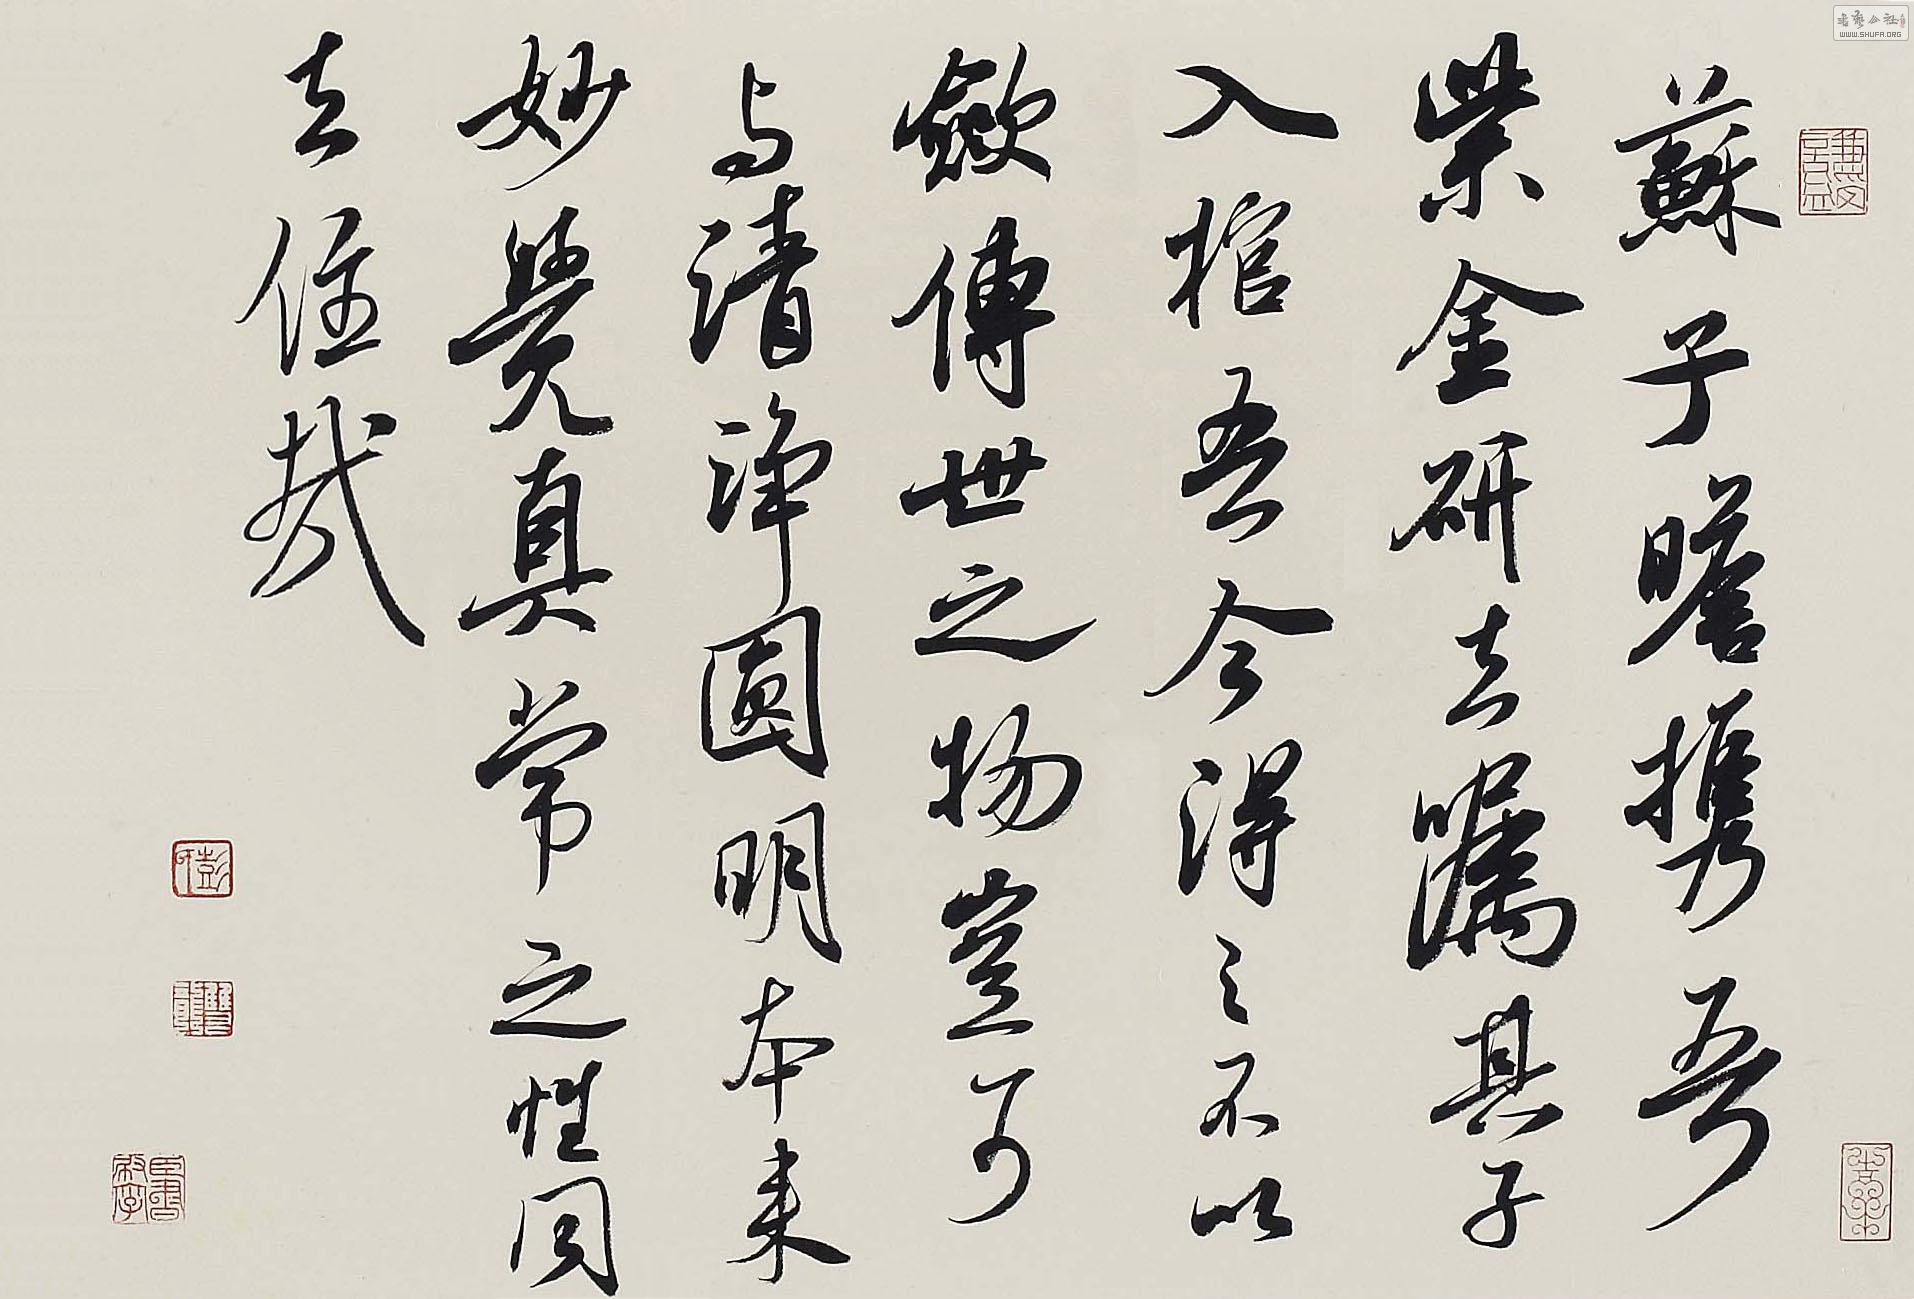 蘇子瞻携吾
紫金研去嘱其子
入棺吾今得之不以
歛傳世之物豈可
与清淨圓明本来
妙覺真常之性同
去住哉
WWW.SHUFA.ORG